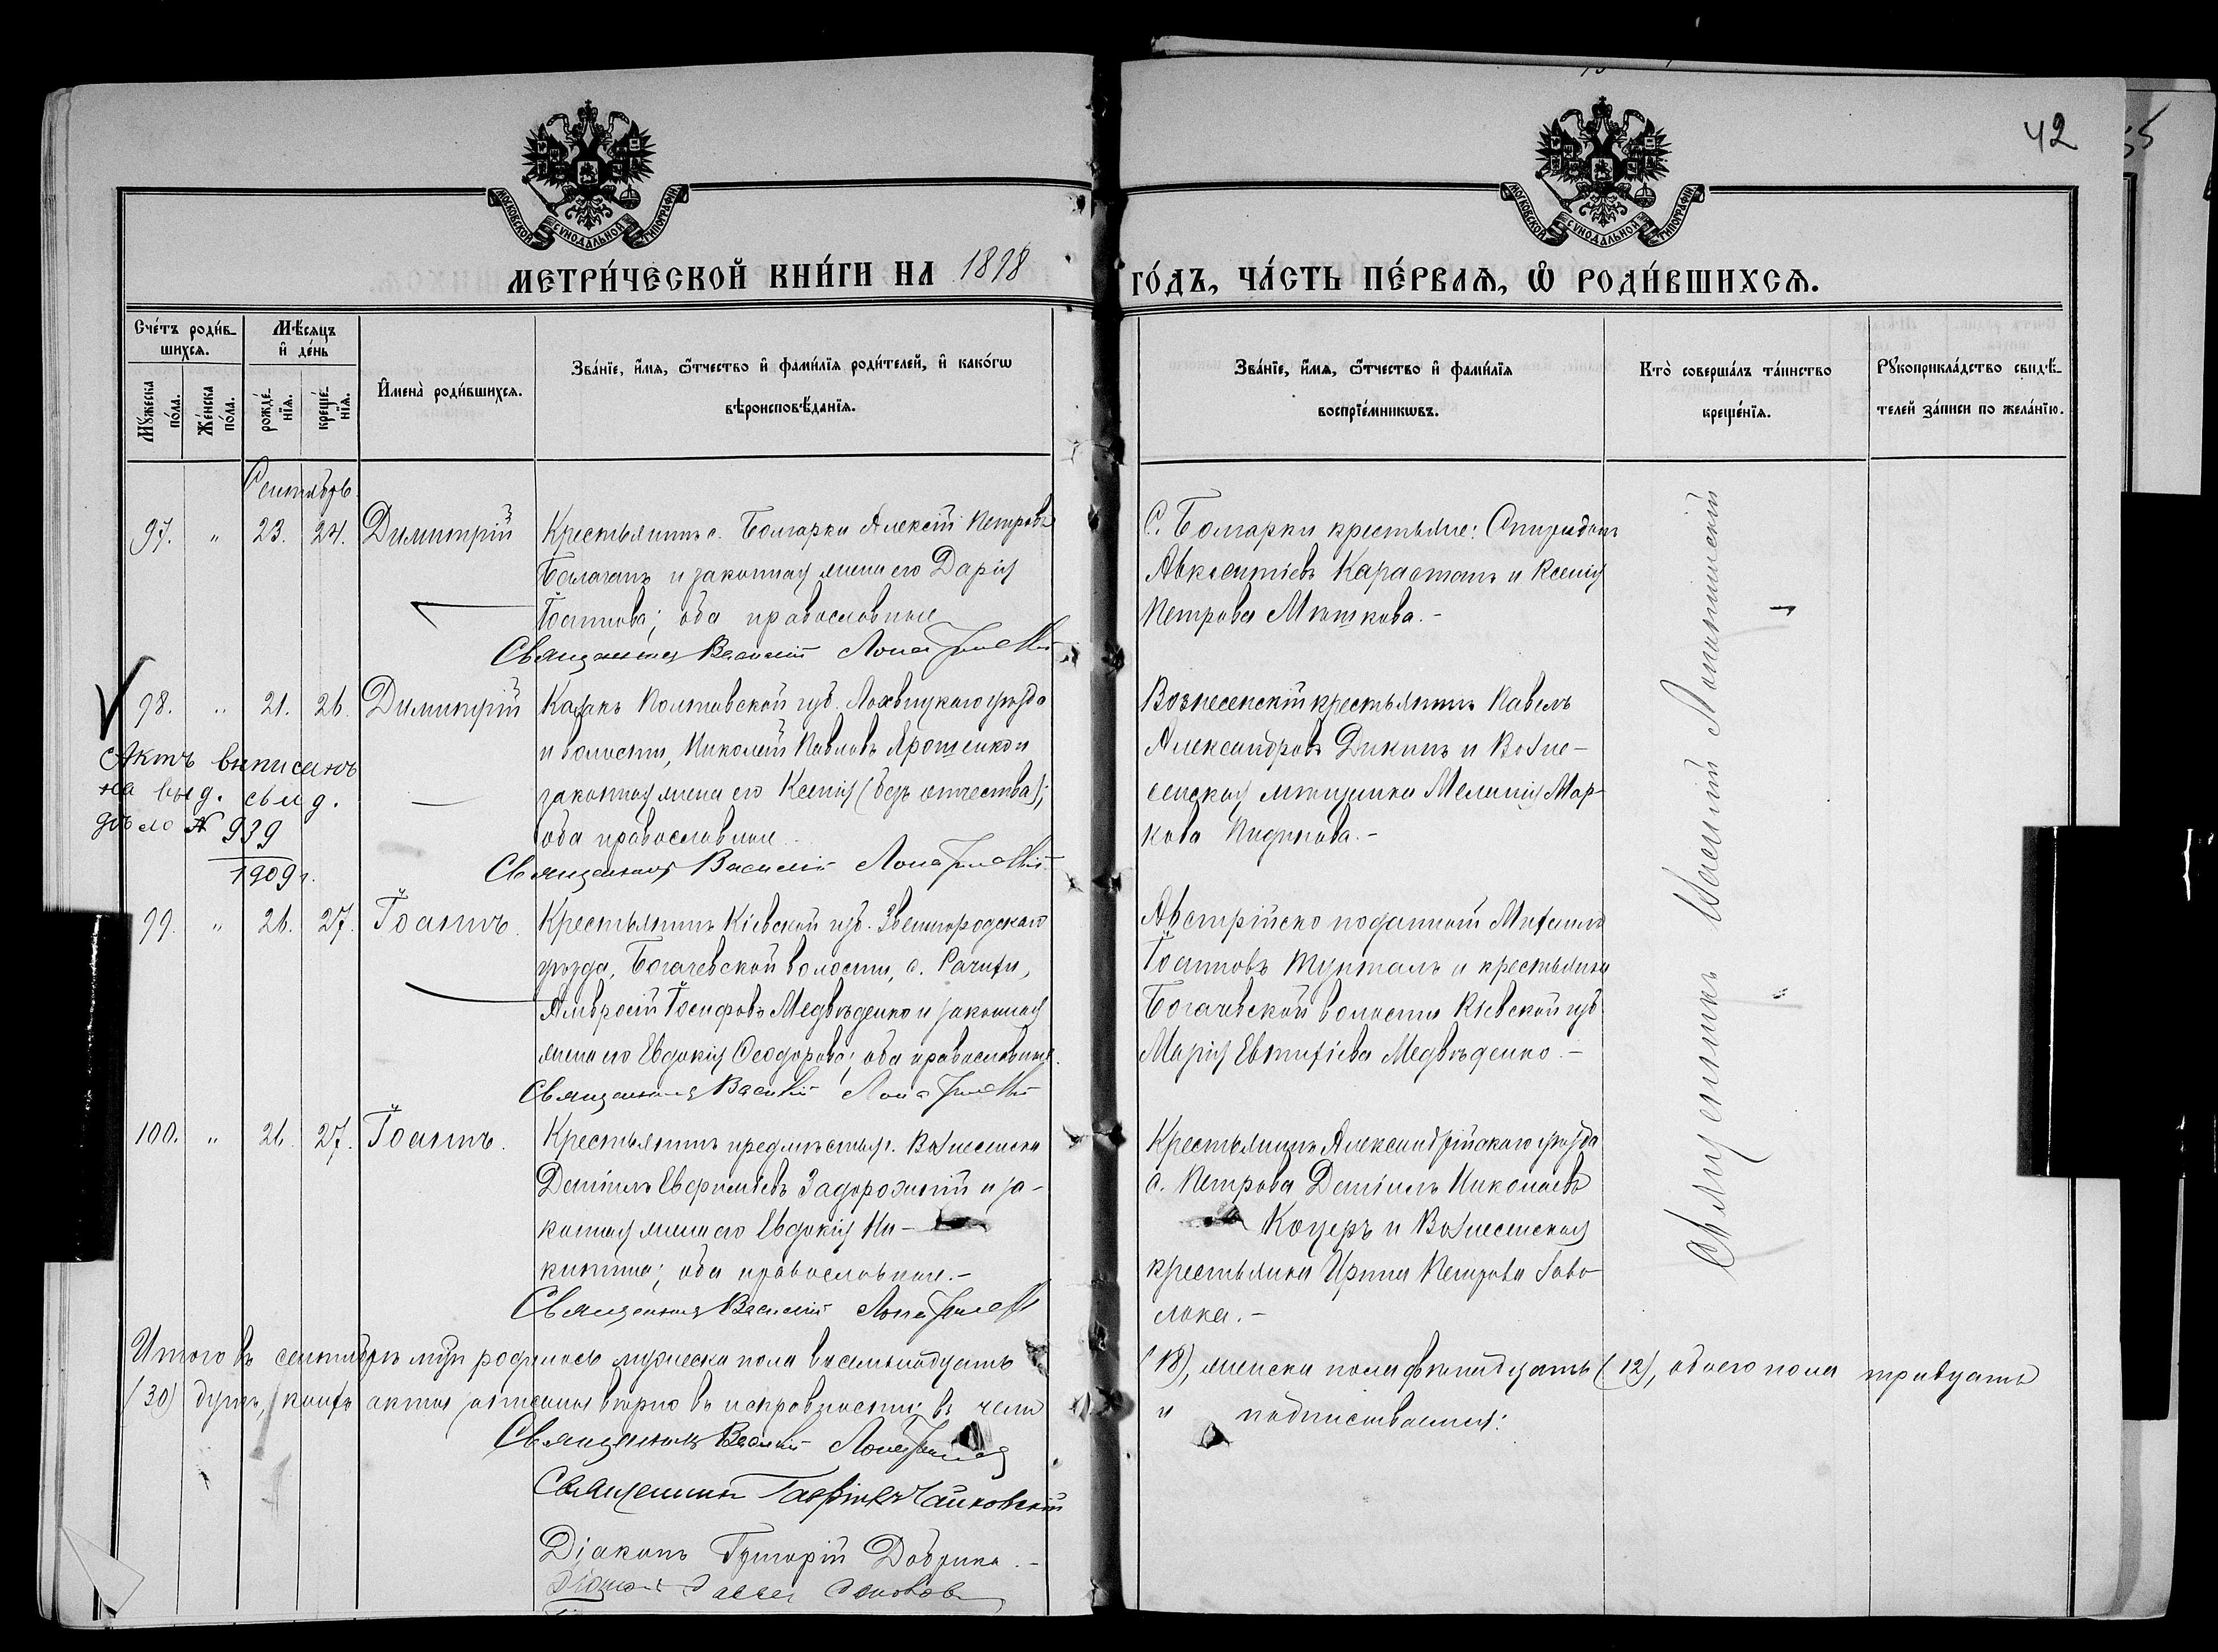 42
МОСКОВСКОЙ СѴНОДАЛЬНОЙ ТИПОГРАФІИ
МОСКОВСКОЙ СѴНОДАЛЬНОЙ ТИПОГРАФІИ
МЕТРИ́ЧЕСКОЙ КНИ́ГИ НА 1898 ГО́ДЪ, ЧА́СТЬ ПЕ́РВАѦ, Ѿ РОДИ́ВШИХСѦ.
Сче́тъ роди́в-
шихсѧ.
Мѣ́сѧцъ
и҆ де́нь
Мꙋ́жеска
по́ла.
Же́нска
по́ла.
рожде́-
нїѧ.
креще́-
нїѧ.
И҆мена̀ роди́вшихсѧ.
Зва́нїе, и҆́мѧ, ѻ҆́тчество и҆ фами́лїѧ роди́телей, и҆ како́гѡ
вѣроисповѣ́данїѧ.
Зва́нїе, и҆́мѧ, ѻ҆́тчество и҆ фами́лїѧ
воспрїе́мникѡвъ.
Кто̀ соверша́лъ та́инство
креще́нїѧ.
Рꙋкоприкла́дство свидѣ́-
телей за́писи по жела́нїю.
Сентябрь
97. " 23. 24. Димитрій
Крестьянинъ с. Болгарки Алексій Петровъ
Балаганъ и законная жена его Дарія
Іоаннова; оба православные
Священникъ Василій
С. Болгарки крестьяне: Спиридонъ
Авксентіевъ Карастанъ и Ксенія
Петрова
98. " 21. 26. Димитрій
Казакъ Полтавской губ. Лохвицкаго уѣзда
и волости, Николай Павловъ Ярошенко и
законная жена его Ксенія (безъ отчества);
оба православные.
Священникъ Василій
Вознесенскій крестьянинъ Павелъ
Александровъ Дикинъ и Возне-
сенская мѣщанка Меланія Мар-
кова
Актъ выписанъ
на выд. свид.
дѣло № 939
1909 г.
99. " 26. 27. Іоаннъ.
Крестьянинъ Кіевской губ. Звенигородскаго
уѣзда, Богачевской волости, с.
Амвросій Іосифовъ Медвѣденко и законная
жена его Евдокія Ѳеодорова; оба православные.
Священникъ Василій
Австрійско подданный Михаилъ
Іоанновъ и крестьянка
Богачевской волости Кіевской губ.
Марія Евтихіева Медвѣденко.-
100. " 26. 27. Іоаннъ.
Крестьянинъ предмѣстья г. Вознесенска
Даніилъ Евфиміевъ Задорожній и за-
конная жена его Евдокія Ни-
китина; оба православные.-
Священникъ Василій
Крестьянинъ Александрійскаго уѣзда
с. Петрова Даніилъ Николаевъ
Коцеръ и Вознесенская
крестьянка Ирина Петрова Гаво-
лока.-
Священникъ Василій
Итого въ сентябрѣ м-цѣ родилось мужеска пола восемьнадцать (18), женска пола двѣнадцать (12), обоего пола тридцать
(30) душъ, коихъ акты записаны вѣрно въ исправности въ чемъ и подписываемся:
Священникъ Василій
Священникъ Гавріилъ Чайковскій
Діаконъ Григорій Добрина.-